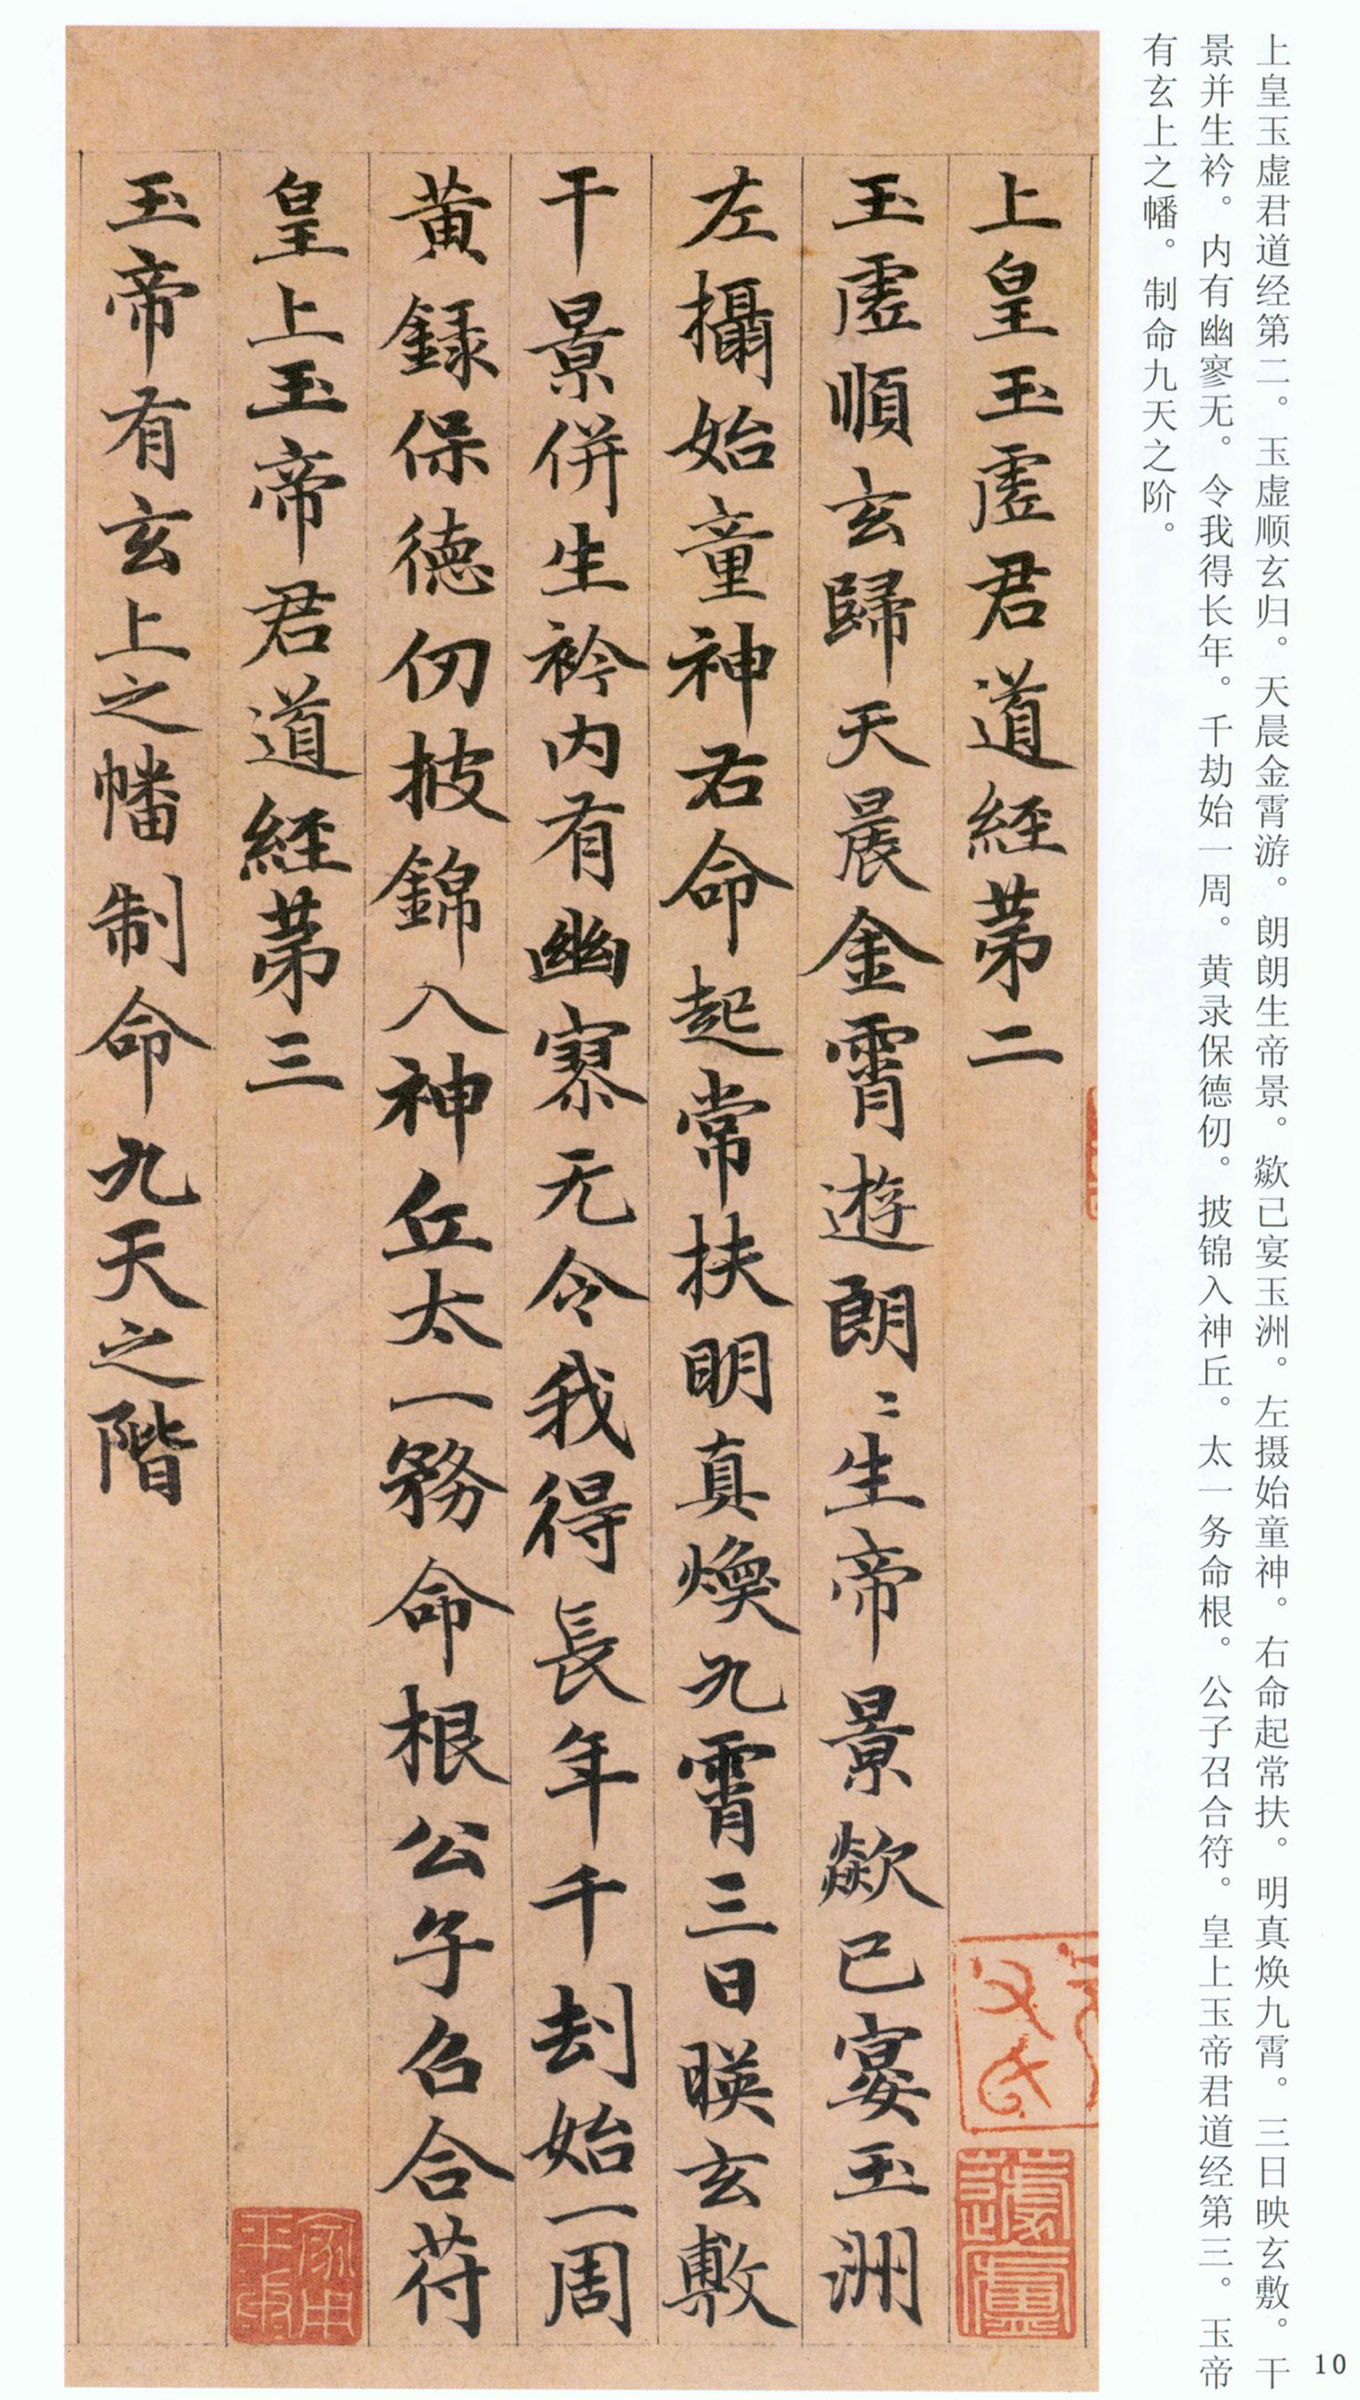 上皇玉虚君道经第二。玉虚顺玄归。天晨金霄游。朗朗生帝景。歘已宴玉洲。左摄始童神。右命起常扶。明真焕九霄。三日映玄敷。干
景并生衿。内有幽寥无。令我得长年。千劫始一周。黄录保德仞。披锦入神丘。太一务命根。公子召合符。皇上玉帝君道经第三。玉帝
有玄上之幡。制命九天之阶。
上皇玉虛君道經苐二
玉虛順玄歸天晨金霄遊朗〻生帝景歘已宴玉洲
左攝始童神右命起常扶明真煥九霄三日暎玄敷
干景併生衿内有幽寥无令我得長年千刦始一周
黄録保德仞披錦入神丘太一務命根公子召合符
皇上玉帝君道經苐三
玉帝有玄上之幡制命九天之階
10